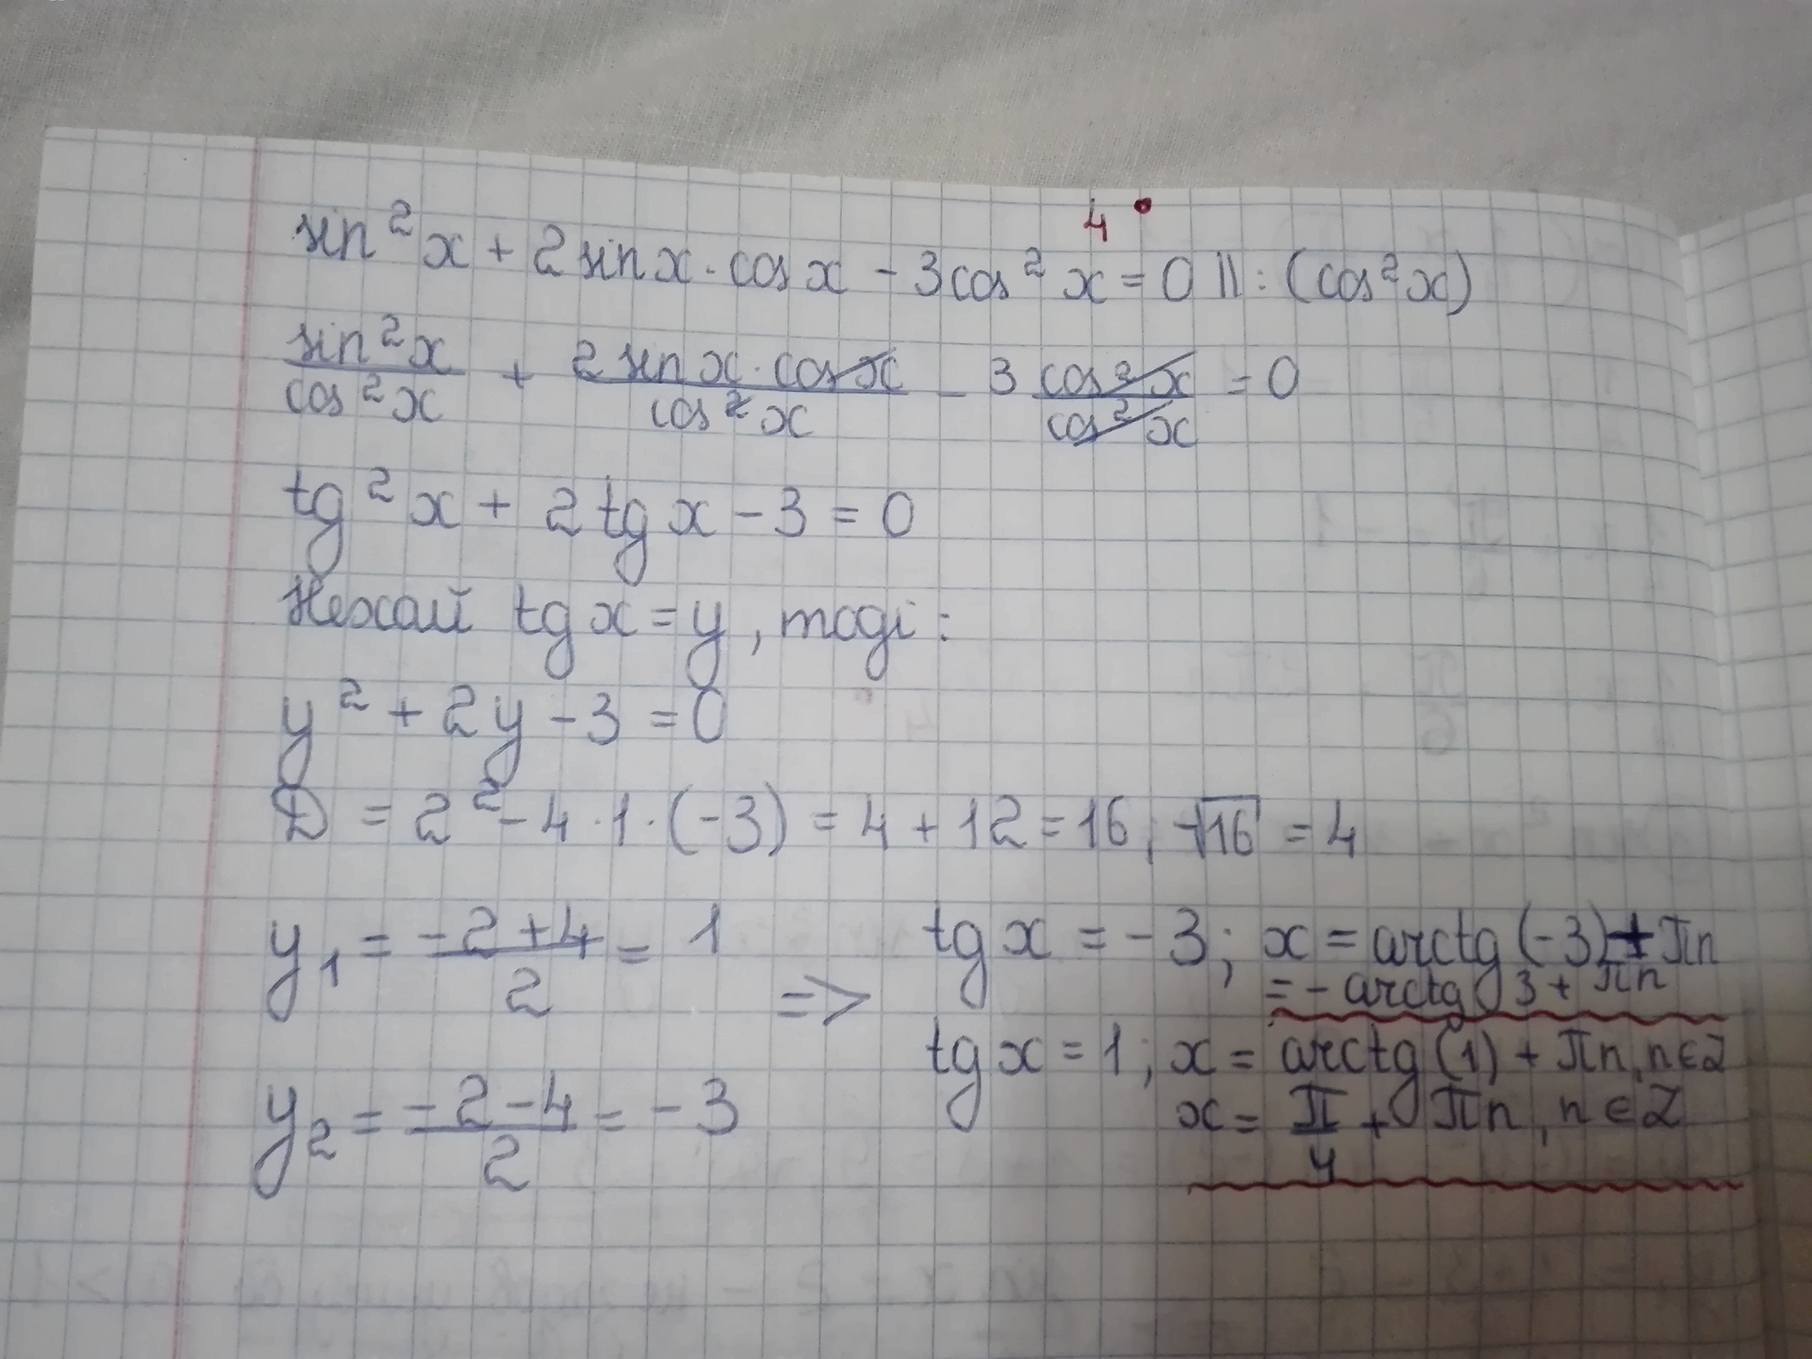 4•
sin²x + 2 sin x · cos x - 3cos²x = 0 || : (cos²x)
sin²x/cos²x + 2 sin x · cos x/cos²x - 3 cos²x/cos²x = 0
tg²x + 2tg x - 3 = 0
Нехай tg x = y, тоді:
y² + 2y - 3 = 0
D = 2² - 4 · 1 · (-3) = 4 + 12 = 16; √16 = 4
y₁ = (-2+4)/2 = 1
=>
tg x = -3; x = arctg(-3) + πn
= - arctg 3 + πn
tg x = 1; x = arctg(1) + πn, n∈Z
y₂ = (-2-4)/2 = -3
x = π/4 + πn, n∈Z